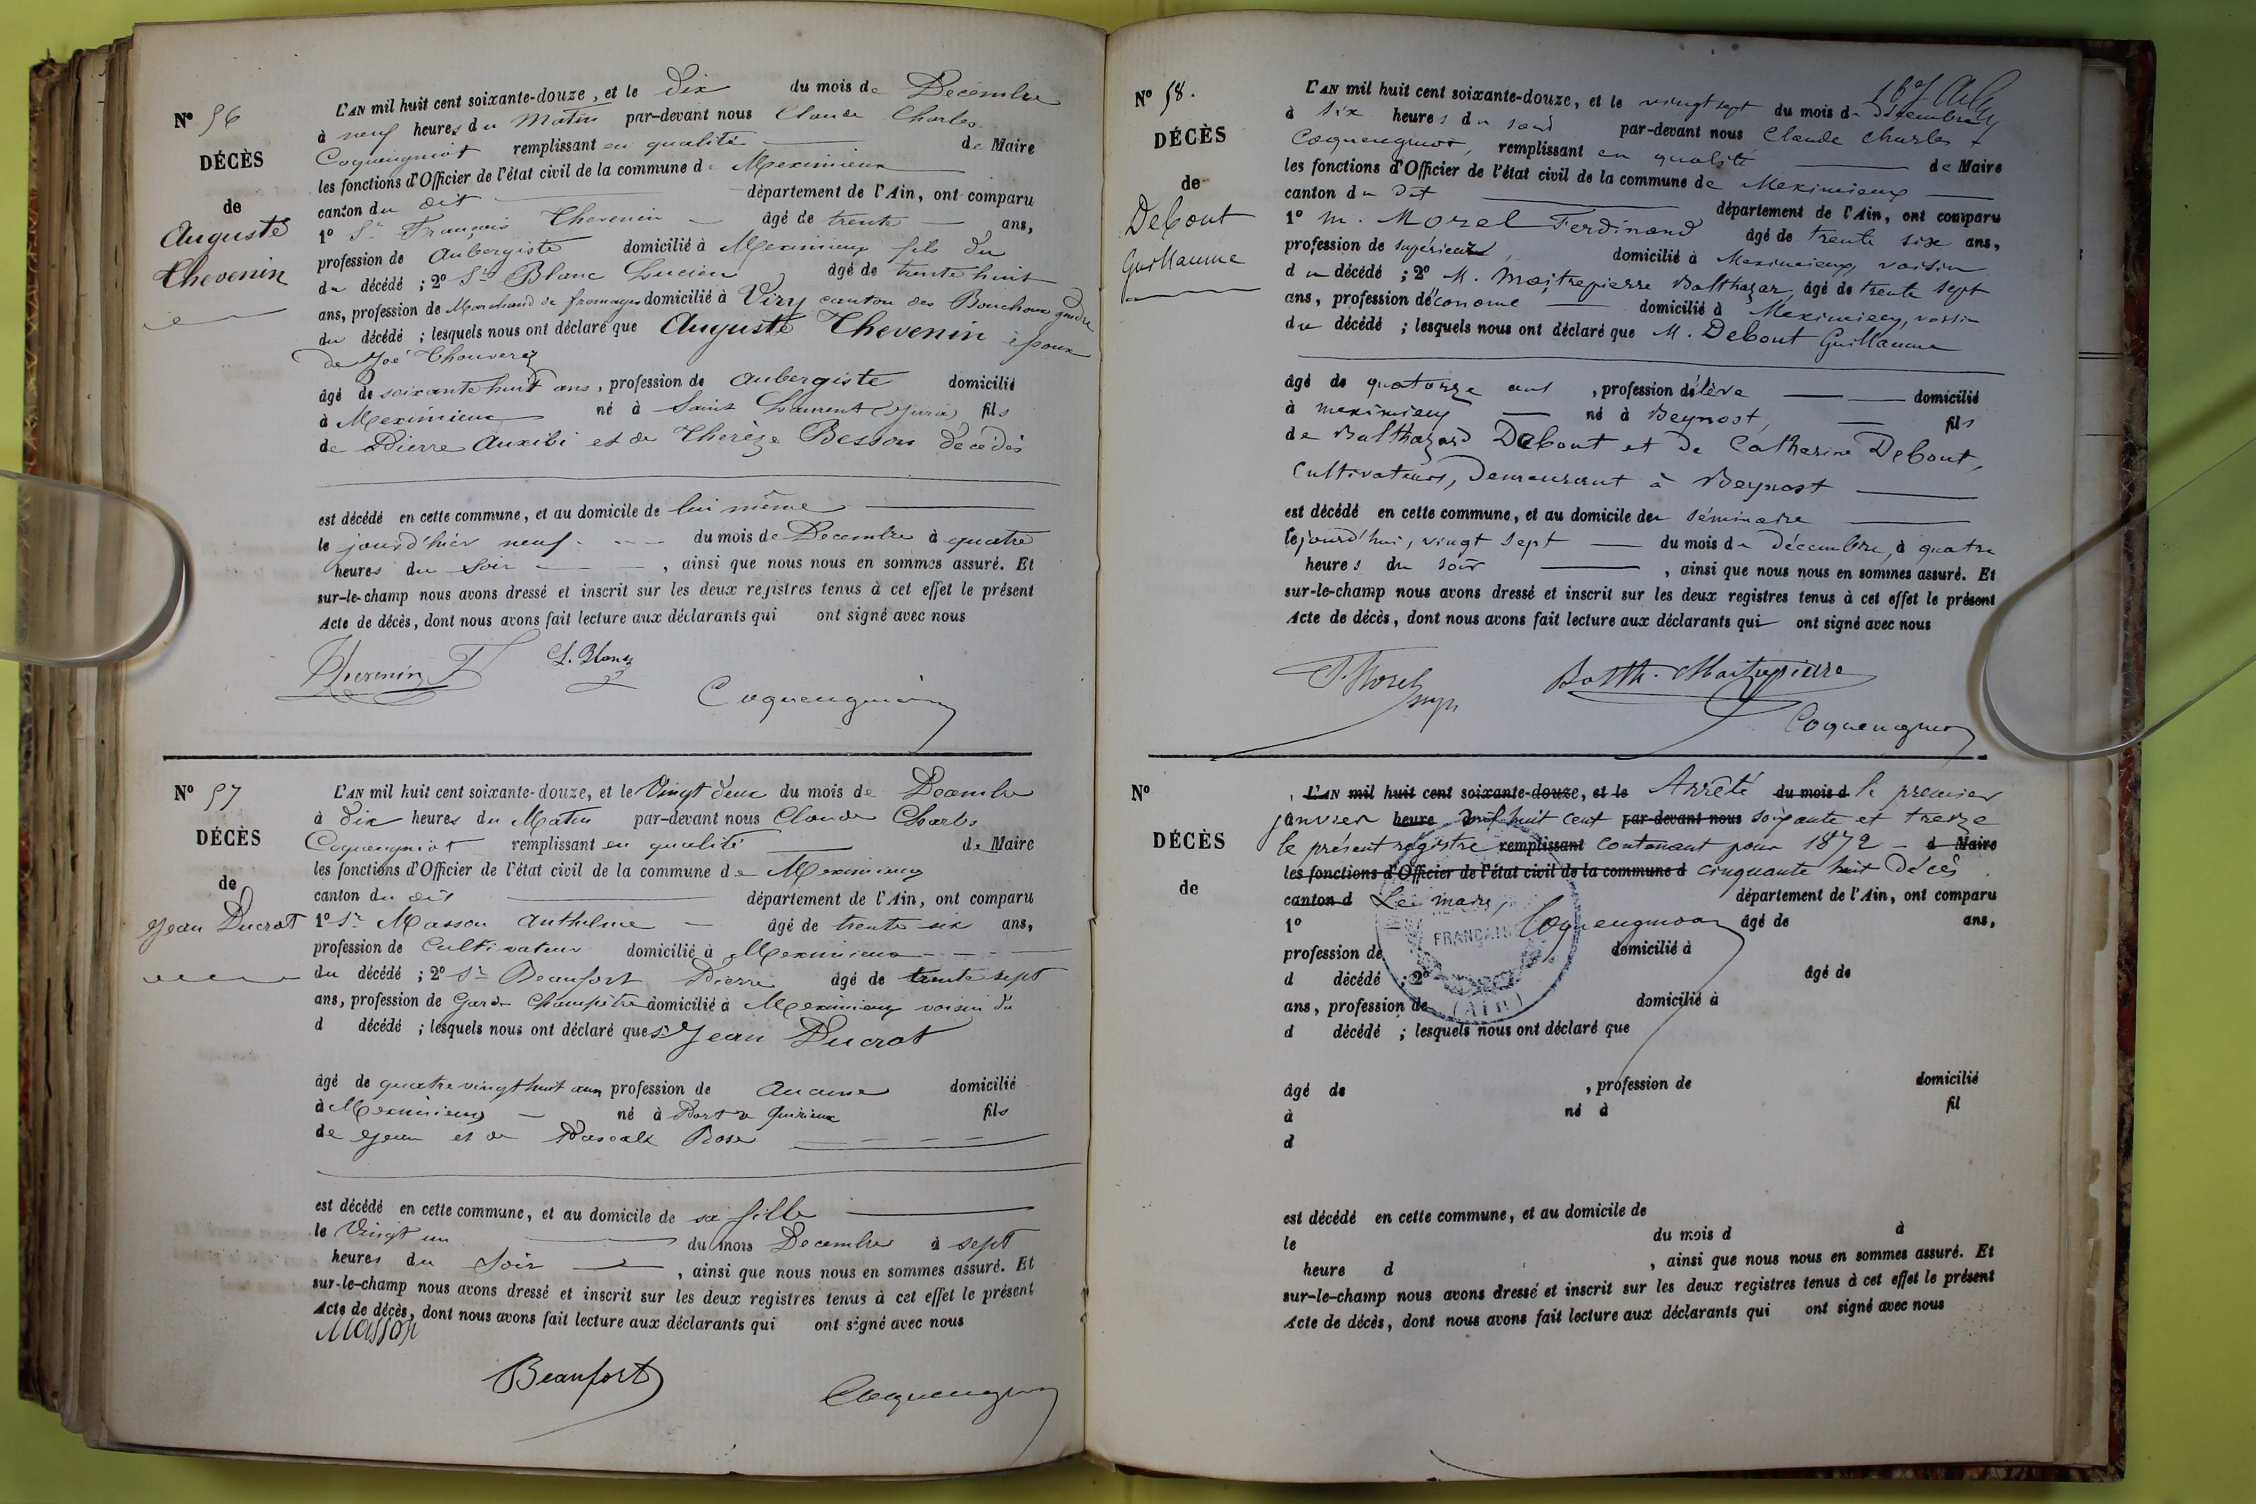 Nº 56
DÉCÈS
de
Auguste
Thevenin
L'AN mil huit cent soixante-douze, et le dix du mois de Décembre
à neuf heures du Matin par-devant nous Claude Charles
Coquengniot remplissant en qualité de Maire
les fonctions d'Officier de l'état civil de la commune de Meximieux
canton du dit département de l'Ain, ont comparu
1º Sr François Thevenin âgé de trente ans,
profession de aubergiste domicilié à Meximieux fils du
du décédé ; 2º Sr Blanc Lucien âgé de trente huit
ans, profession de Marchand de fromages domicilié à Viry canton des Bouchoux gendre
du décédé ; lesquels nous ont déclaré que Auguste Thevenin époux
de Zoé Thouverez
âgé de soixante huit ans, profession de aubergiste domicilié
à Meximieux né à Saint Laurent (Jura) fils
de Pierre Auxibi et de Therèze Besson décédés
est décédé en cette commune, et au domicile de lui même
le jourd'hier neuf du mois de Decembre à quatre
heures du Soir, ainsi que nous nous en sommes assuré. Et
sur-le-champ nous avons dressé et inscrit sur les deux registres tenus à cet effet le présent
Acte de décès, dont nous avons fait lecture aux déclarants qui ont signé avec nous
Thevenin F L. Blanc
Coquengniot
Nº 57
DÉCÈS
de
Jean Ducrot
L'AN mil huit cent soixante-douze, et le Vingt deux du mois de Décembre
à dix heures du Matin par-devant nous Claude Charles
Coquengniot remplissant en qualité de Maire
les fonctions d'Officier de l'état civil de la commune de Meximieux
canton du dit département de l'Ain, ont comparu
1º Sr Masson Anthelme âgé de trente six ans,
profession de Cultivateur domicilié à Meximieux
du décédé ; 2º Sr Beaufort Pierre âgé de trente sept
ans, profession de Garde Champêtre domicilié à Meximieux voisin du
d décédé ; lesquels nous ont déclaré que Sr Jean Ducrot
âgé de quatre vingt huit ans profession de aucune domicilié
à Meximieux né à Port fils
de Jean et de Rose
est décédé en cette commune, et au domicile de sa fille
le Vingt un du mois Decembre à sept
heures du Soir, ainsi que nous nous en sommes assuré. Et
sur-le-champ nous avons dressé et inscrit sur les deux registres tenus à cet effet le présent
Acte de décès, dont nous avons fait lecture aux déclarants qui ont signé avec nous
Masson
Beaufort
Coquengniot
Nº 58.
DÉCÈS
de
Debout
Guillaume
L'AN mil huit cent soixante-douze, et le vingt sept du mois de Décembre
à six heures du soir par-devant nous Claude Charles
Coquengniot, remplissant en qualité de Maire
les fonctions d'Officier de l'état civil de la commune de Meximieux
canton du dit département de l'Ain, ont comparu
1º M. Morel Ferdinand âgé de trente six ans,
profession de supérieur, domicilié à Meximieux, voisin
du décédé ; 2º M. Maitrepierre Balthazar, âgé de trente sept
ans, profession d'économe domicilié à Meximieux, voisin
du décédé ; lesquels nous ont déclaré que M. Debout Guillaume
âgé de quatorze ans, profession d'élève domicilié
à Meximieux né à Beynost, fils
de Balthazard Debout et de Catherine Debout,
Cultivateurs, Demeurant à Beynost
est décédé en cette commune, et au domicile du séminaire
lejourd'hui, vingt sept du mois de décembre, à quatre
heures du soir, ainsi que nous nous en sommes assuré. Et
sur-le-champ nous avons dressé et inscrit sur les deux registres tenus à cet effet le présent
Acte de décès, dont nous avons fait lecture aux déclarants qui ont signé avec nous
F. Morel sup. Balth. Maitrepierre
Coquengniot
Nº
DÉCÈS
de
L'AN mil huit cent soixante-douze, et le Arrêté du mois d le premier
janvier heure mil huit cent par-devant nous soixante et treize
le présent registre remplissant contenant pour 1872 - d Maire
les fonctions d'Officier de l'état civil de la commune d cinquante huit Décès
canton d Le maire, département de l'Ain, ont comparu
1º Coquengniot âgé de ans,
FRANÇAISE
(AIN)
profession de domicilié à
d décédé ; 2º âgé de
ans, profession de domicilié à
d décédé ; lesquels nous ont déclaré que
âgé de , profession de domicilié
à né à fil
d
est décédé en cette commune, et au domicile de
le du mois d à
heure d , ainsi que nous nous en sommes assuré. Et
sur-le-champ nous avons dressé et inscrit sur les deux registres tenus à cet effet le présent
Acte de décès, dont nous avons fait lecture aux déclarants qui ont signé avec nous